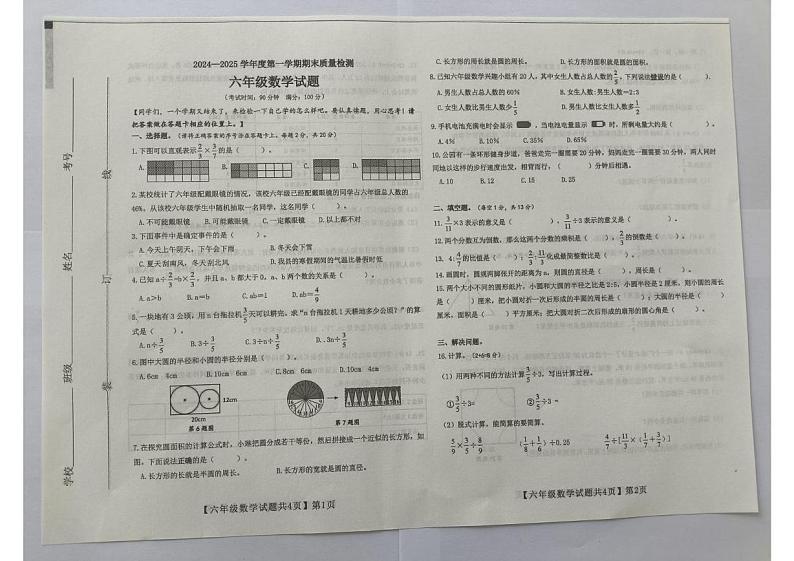 2024—2025 学年度第一学期期末质量检测
六年级数学试题
（考试时间：90分钟 满分：100分）
【同学们，一个学期又结束了，来检验一下自己学的怎么样吧。要认真读题，用心思考！请
把答案做在答题卡相应的位置上。】
一、选择题。（请将正确答案的序号涂在答题卡上。每题2分，共20分）
1.下图可以直观表示2/3×3/7的是（ ）。
A. B. C. D.
2.某校统计了六年级配戴眼镜的情况，该校六年级已经配戴眼镜的同学占六年级总人数的
46%，从该校六年级学生中随机抽取一名同学，这名同学（ ）。
A.不可能戴眼镜 B.可能戴眼镜 C.一定戴眼镜 D.以上都不对
3.下面事件中是确定事件的是（ ）。
A.今天上午阴天，下午会下雨 B.冬天会下雪
C.夏天刮南风，冬天刮北风 D.我县的寒假期间的气温比暑假时低
4.已知 a÷2/3=b×2/3，并且a、b都大于0，a、b两个数的关系是（ ）。
A.a＞b B.a=b C.ab=1 D.ab=4/9
5.一块地有3公顷，用n台拖拉机3/5天可以耕完。求“n台拖拉机1天耕地多少公顷？”的算
式是（ ）。
A.n÷3/5 B.3÷3/5 C.3÷n÷3/5 D.3n÷3/5
6.图中大圆的半径和小圆的半径分别是（ ）。
A.6cm 4cm B.10cm 6cm C.8cm 6cm D.10cm 4cm
12cm
20cm
第6题图 第7题图
7.在探究圆面积的计算公式时，小琳把圆分成若干等份，然后拼接成一个近似的长方形，如
图，下面说法正确的是（ ）。
A.长方形的长就是半圆的周长。 B.长方形的宽就是圆的直径。
【六年级数学试题共4页】第1页
学校 班级 姓名 考号
装 订 线
C.长方形的周长就是圆的周长。 D.长方形的面积就是圆的面积。
8.已知六年级数学兴趣小组有20人，其中女生人数占总人数的2/5，下列说法错误的是（ ）。
A.男生人数占总人数的60% B.女生人数:男生人数=2:3
C.女生人数比男生人数少1/5 D.男生人数比女生人数多1/2
9.手机电池充满电时会显示 ，当电池电量显示 时，所剩电量大约是（ ）。
A.4% B.10% C.35% D.65%
10.公园有一条环形健身步道，爸爸走完一圈需要20分钟，妈妈走完一圈需要30分钟，两人同
时同地以这样的步行速度出发，相背而行，（ ）分钟后相遇。
A.10 B.12 C.15 D.25
二、填空题。（每空1分，共13分）
11.3/11×3表示的意义是（ ），3/11÷3表示的意义是（ ）。
12.两个分数互为倒数，那么这两个分数的乘积是（ ），2/3的倒数是（ ）。
14.画圆时，圆规两脚张开的距离为a，则圆的直径是（ ），周长是（ ）。
15.两个大小不同的圆形纸片，小圆和大圆的半径之比是2:5，小圆半径是2厘米，则小圆的周长
是（ ）厘米，把小圆对折一次后形成的半圆的周长是（ ）；大圆的半径是（ ）
厘米，面积是（ ）平方厘米；把大圆对折二次后形成的扇形的圆心角是（ ）。
三、解决问题。
16.计算。（2+6=8分）
（1）用两种不同的方法计算3/5÷3。写出计算过程。
①3/5÷3 ②3/5÷3=
（2）脱式计算，能简算的要简算。
5/9×3/5÷8/9 (1/8+1/6)÷0.25 4/7÷[11/3×(1/7+3/7)]
【六年级数学试题共4页】第2页